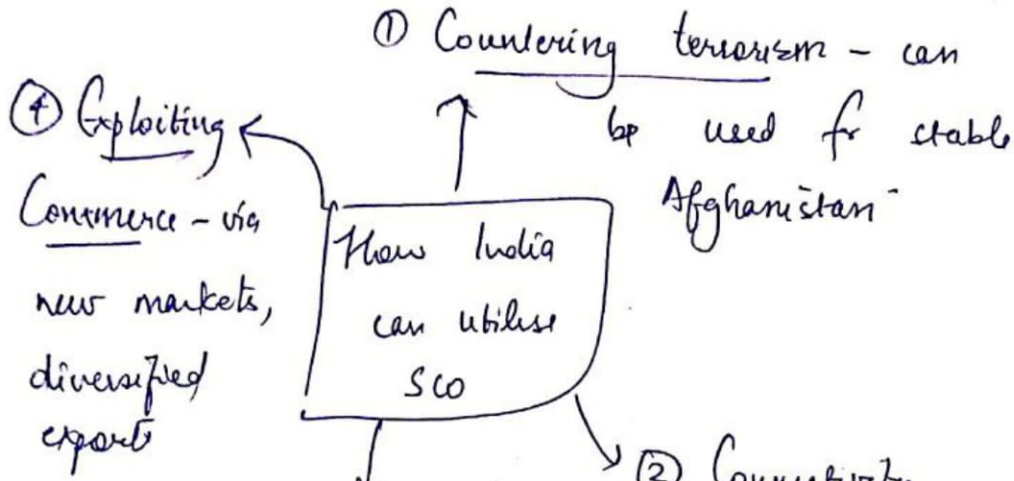 ① Countering terrorism - can
be used fr stable
Afghanistan
④ Exploiting
Commerce - via
new markets,
diversified
export
How India
can utilise
SCO
②